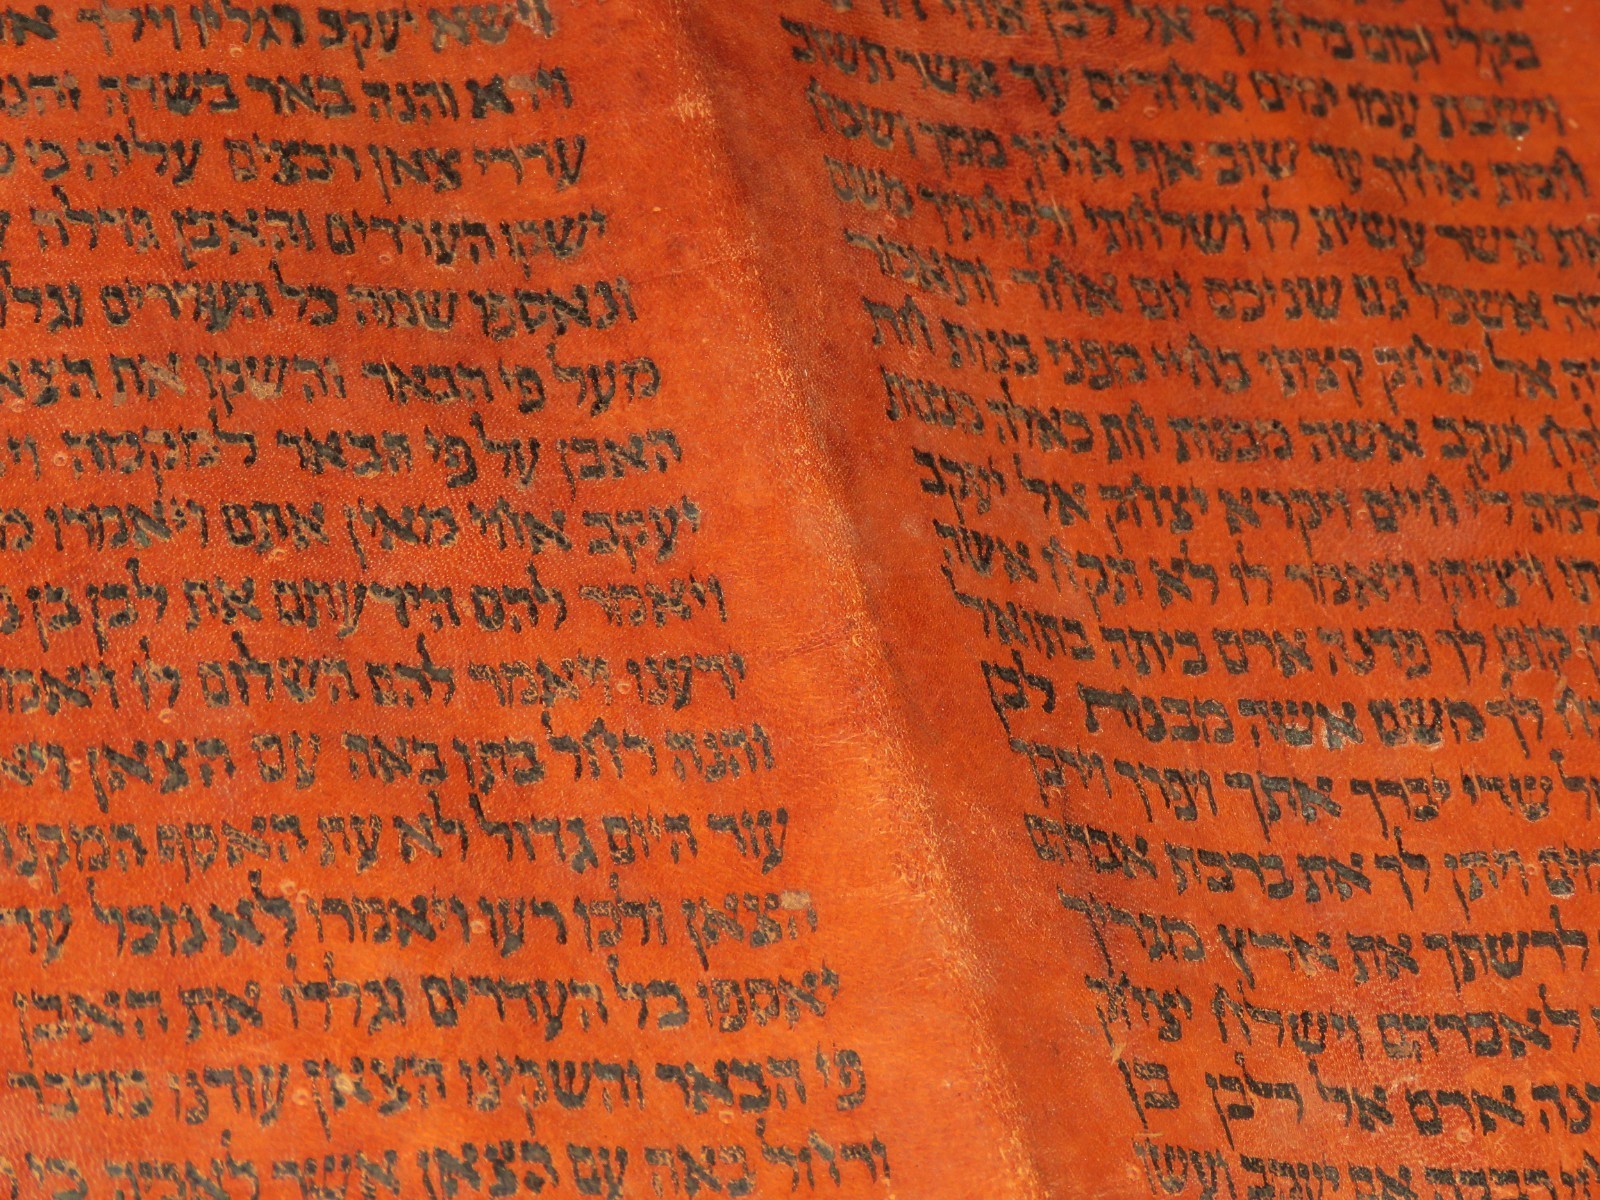 בקלי וקום ברח לך אל לבן אחי
וישבת עמו ימים אחדים עד אשר תשוב
חמת אחיך עד שוב אף אחיך ממך ושכח
את אשר עשית לו ושלחתי ולקחתיך משם
אשכל גם שניכם יום אחד ותאמר
אל יצחק קצתי בחיי מפני בנות חת
לקח יעקב אשה מבנות חת כאלה מבנות
למה לי חיים ויקרא יצחק אל יעקב
ויצוהו ויאמר לו לא תקח אשה
קום לך פדנה ארם ביתה בתואל
לך משם אשה מבנות לבן
שדי יברך אתך ויפרך וירבך
ויתן לך את ברכת אברהם
לרשתך את ארץ מגריך
לאברהם וישלח יצחק
ארם אל לבן בן
אם יעקב ועשו
וישא יעקב רגליו וילך
וירא והנה באר בשדה והנה
עדרי צאן רבצים עליה כי
ישקו העדרים והאבן גדלה
ונאספו שמה כל העדרים וגללו
מעל פי הבאר והשקו את הצאן
האבן על פי הבאר למקמה
יעקב אחי מאין אתם ויאמרו
ויאמר להם הידעתם את לבן בן
ידענו ויאמר להם השלום לו ויאמרו
והנה רחל בתו באה עם הצאן
עוד היום גדול לא עת האסף המקנה
הצאן ולכו רעו ויאמרו לא נוכל עד
יאספו כל העדרים וגללו את האבן
פי הבאר והשקינו הצאן עודנו מדבר
ורחל באה עם הצאן אשר לאביה כי